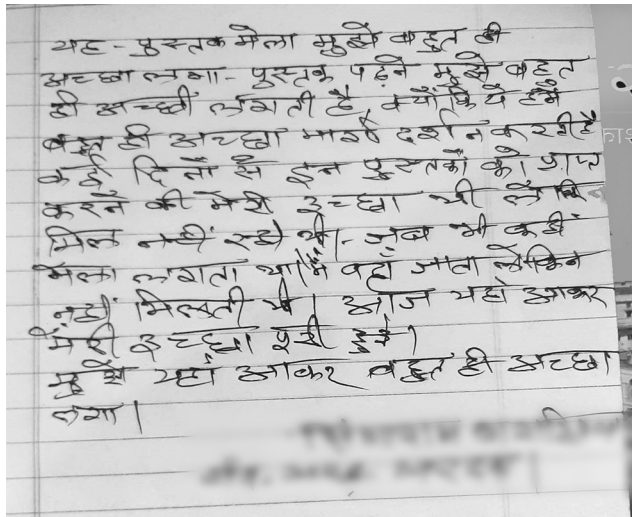 यह - पुस्तक मेला मुझे बहुत ही
अच्छा लगा - पुस्तक पढ़ने मुझे बहुत
ही अच्छी लगती है, क्योंकि ये हमें
बहुत ही अच्छा मार्ग दर्शन करती है
कई दिनों से इन पुस्तकों को प्राप्त
करने की मेरी इच्छा थी लेकिन
मिल नहीं रही थी। जब भी कहीं
मेला लगता था मैं वहाँ जाता लेकिन
नहीं मिलती थी। आज यहां आकर
मेरी इच्छा पूरी हुई।
मुझे यहां आकर बहुत ही अच्छा
लगा।